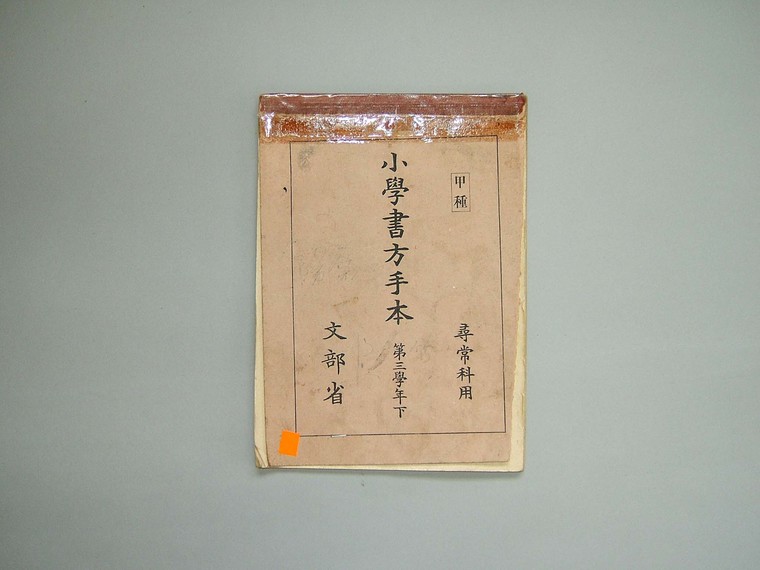 甲種
尋常科用
小學書方手本
第三學年下
文部省